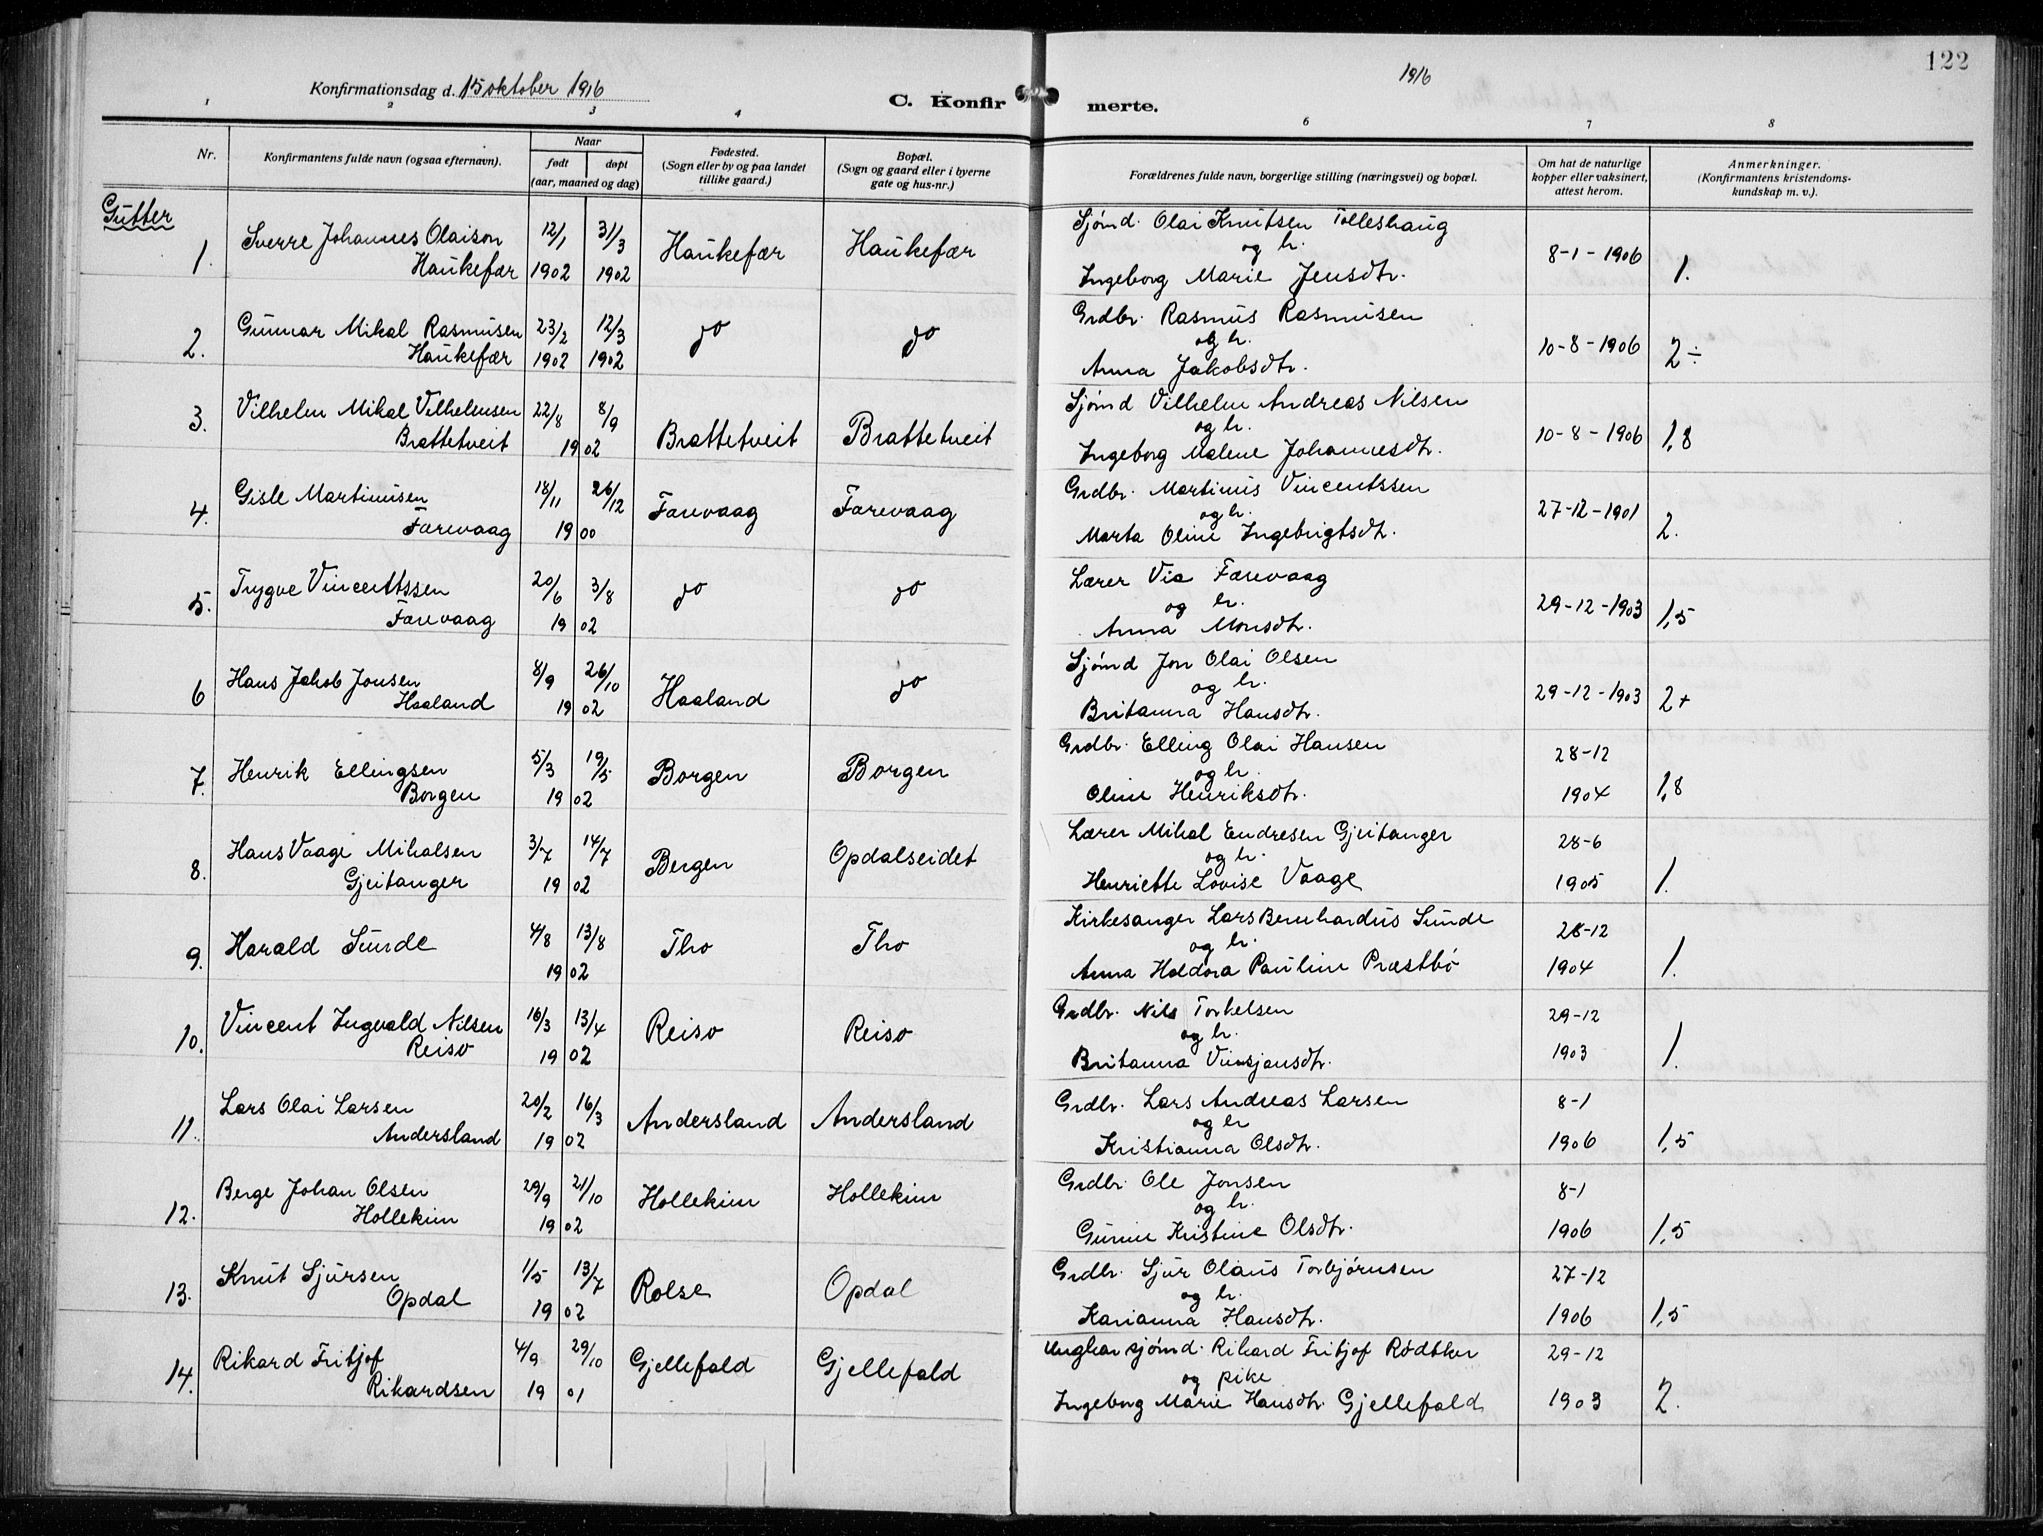 122
Konfirmationsdag d. 15 oktober 1916
1916
C. Konfirmerte.
1 2 3 4 6 7 8
Nr. Konfirmantens fulde navn (ogsaa efternavn). Naar født døpt (aar, maaned og dag) Fødested. (Sogn eller by og paa landet tillike gaard.) Bopæl. (Sogn og gaard eller i byerne gate og hus-nr.) Forældrenes fulde navn, borgerlige stilling (næringsvei) og bopæl. Om hat de naturlige kopper eller vaksinert, attest herom. Anmerkninger. (Konfirmantens kristendoms-kundskap m. v.).
Gutter
1. Sverre Johannes Olaison Haukefær 12/1 1902 31/3 1902 Haukefær Haukefær Sjømd. Olai Knutsen Tolleshaug og h. Ingeborg Marie Jensdtr. 8-1-1906 1.
2. Gunnar Mikal Rasmusen Haukefær 23/2 1902 12/3 1902 do do Grdbr. Rasmus Rasmusen og h. Anna Jakobsdtr. 10-8-1906 2÷
3. Vilhelm Mikal Vilhelmsen Brattetveit 22/8 8/9 1902 Brattetveit Brattetveit Sjømd Vilhelm Andreas Nilsen og h. Ingeborg Malene Johannesdtr. 10-8-1906 1,8
4. Gisle Martinusen Færevaag 18/11 26/12 1900 Færevaag Færevaag Grdbr. Martinus Vincentssen og h. Marta Oline Ingebrigtsdtr. 27-12-1901 2.
5. Trygve Vincentssen Færevaag 20/6 3/8 1902 do do Lærer Vis Færevaag og h. Anna Monsdtr. 29-12-1903 1,5
6 Hans Jakob Jonsen Haaland 8/9 26/10 1902 Haaland do Sjømd Jon Olai Olsen og h. Britanna Hansdtr. 29-12-1903 2+
7. Henrik Ellingsen Borgen 5/3 19/5 1902 Borgen Borgen Grdbr. Elling Olai Hansen og h. Oline Henriksdtr. 28-12 1904 1,8
8. Hans Vaage Mikalsen Gjeitanger 3/7 14/7 1902 Bergen Opdalseidet Lærer Mikal Endresen Gjeitanger og h. Henriette Lovise Vaage 28-6 1905 1.
9. Harald Sunde 4/8 13/8 1902 Tho Tho Kirkesanger Lars Bernhardus Sunde og h. Anna Haldora Pauline Præstbø 28-12 1904 1.
10. Vincent Ingvald Nilsen Reisø 16/3 13/4 1902 Reisø Reisø Grdbr. Nils Torkelsen og h. Britanna Vinsjansdtr. 29-12 1903 1.
11. Lars Olai Larsen Andersland 20/2 16/3 1902 Andersland Andersland Grdbr. Lars Andreas Larsen og h Kristianna Olsdtr. 8-1 1906 1,5
12. Berge Johan Olsen Hollekim 29/9 21/10 1902 Hollekim Hollekim Grdbr. Ole Jonsen og h. Gurine Kristine Olsdtr. 8-1 1906 1,5
13. Knut Sjursen Opdal 1/5 13/7 1902 Rolse Opdal Grdbr. Sjur Olaus Torbjørnsen og h. Karianna Hansdtr. 27-12 1906 1,5
14. Rikard Fritjof Rikardsen 4/9 29/10 1901 Gjellefald Gjellefald Ungkar sjømd. Rikard Fritjof Rødtker og pike Ingeborg Marie Hansdtr. Gjellefald 29-12 1903 2.